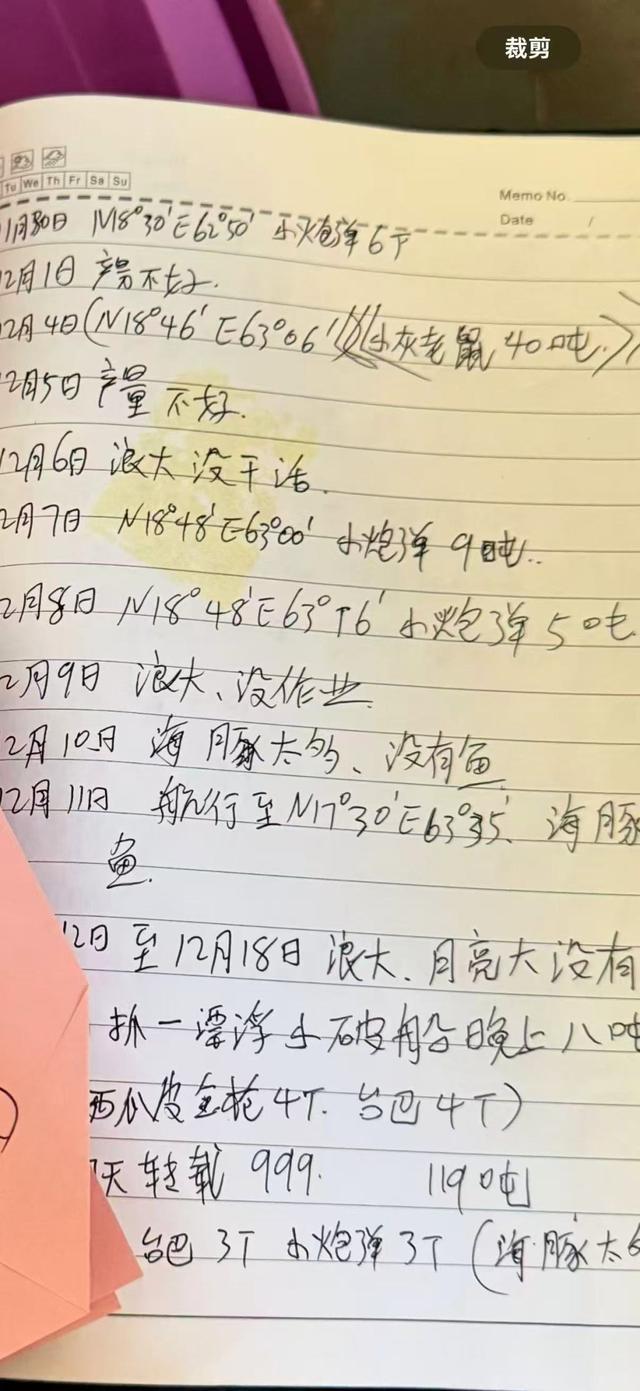 裁剪
Tu We Th Fr Sa Su
Memo No.
Date /
11月30日 N18°30′E62°50′ 小炮弹6T
12月1日 产量不好.
12月4日(N18°46′ E63°06′)(小灰老鼠40吨.)
12月5日 产量不好.
12月6日 浪大没干活.
12月7日 N18°48′E63°00′ 小炮弹9吨..
2月8日 N18°48′E63°16′ 小炮弹5吨
2月9日 浪大、没作业.
2月10日 海豚太多、没有鱼
12月11日 航行至N17°30′E63°35′、海豚
鱼.
12日至12月18日 浪大、月亮大没有
抓一漂浮小破船晚上八吨
西瓜皮金枪4T. 台巴4T)
天转载 999. 119吨
台巴3T 小炮弹3T (海豚太多